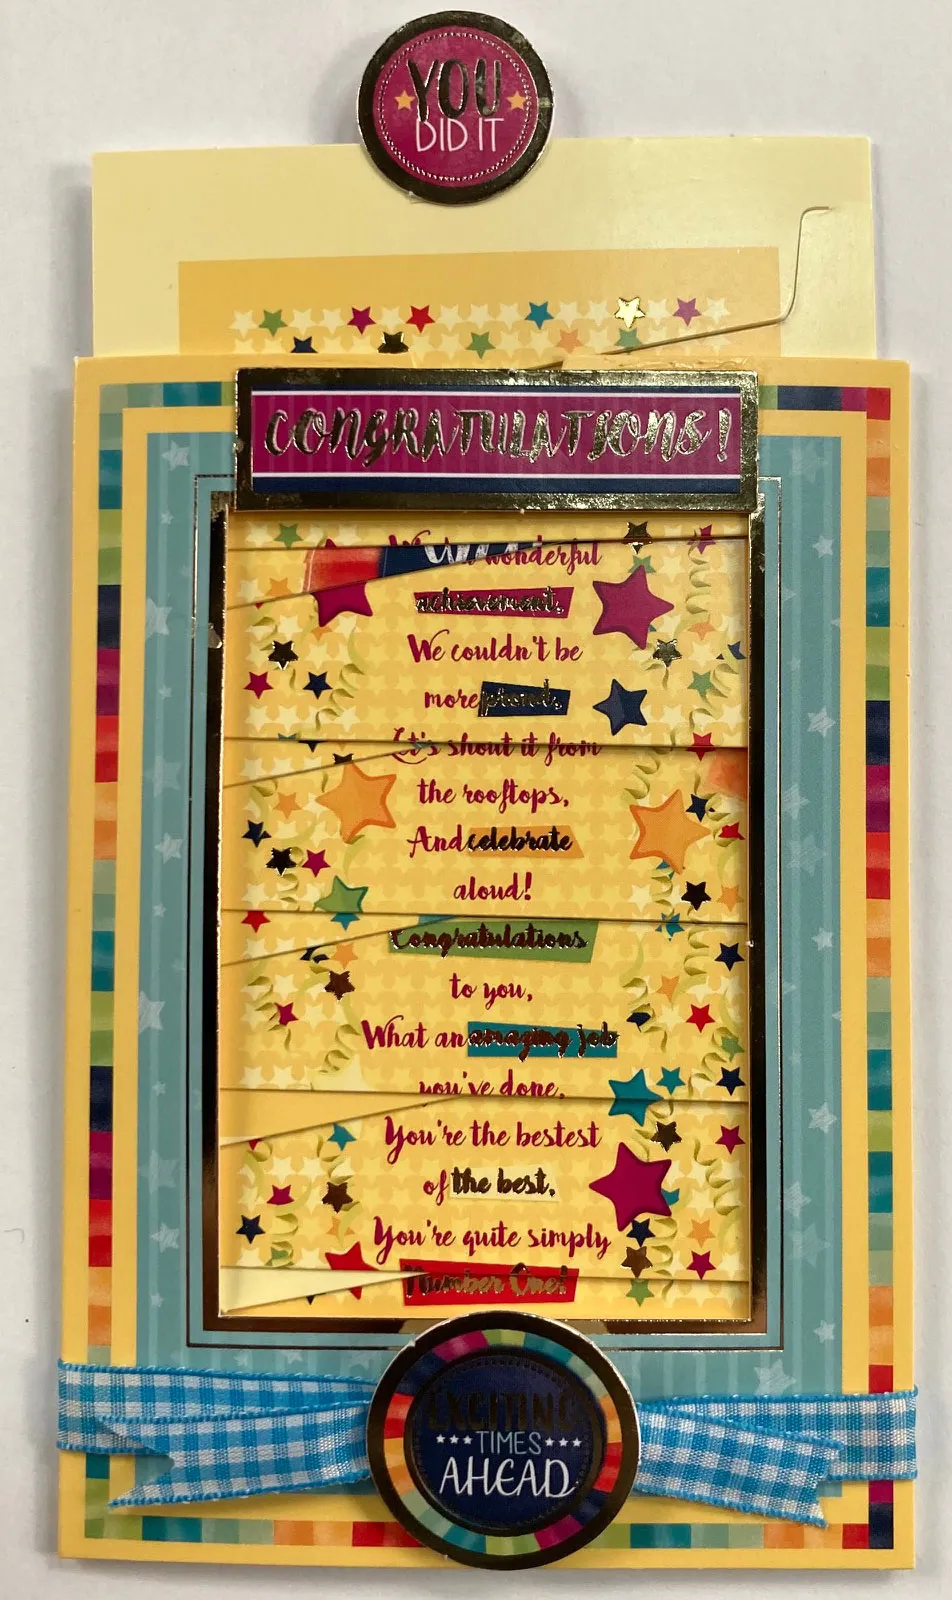 YOU
DID IT
CONGRATULATIONS!
wonderful
achievement,
We couldn't be
more proud,
Let's shout it from
the rooftops,
And celebrate
aloud!
Congratulations
to you,
What an amazing job
you've done,
You're the bestest
of the best,
You're quite simply
Number One!
EXCITING
TIMES
AHEAD